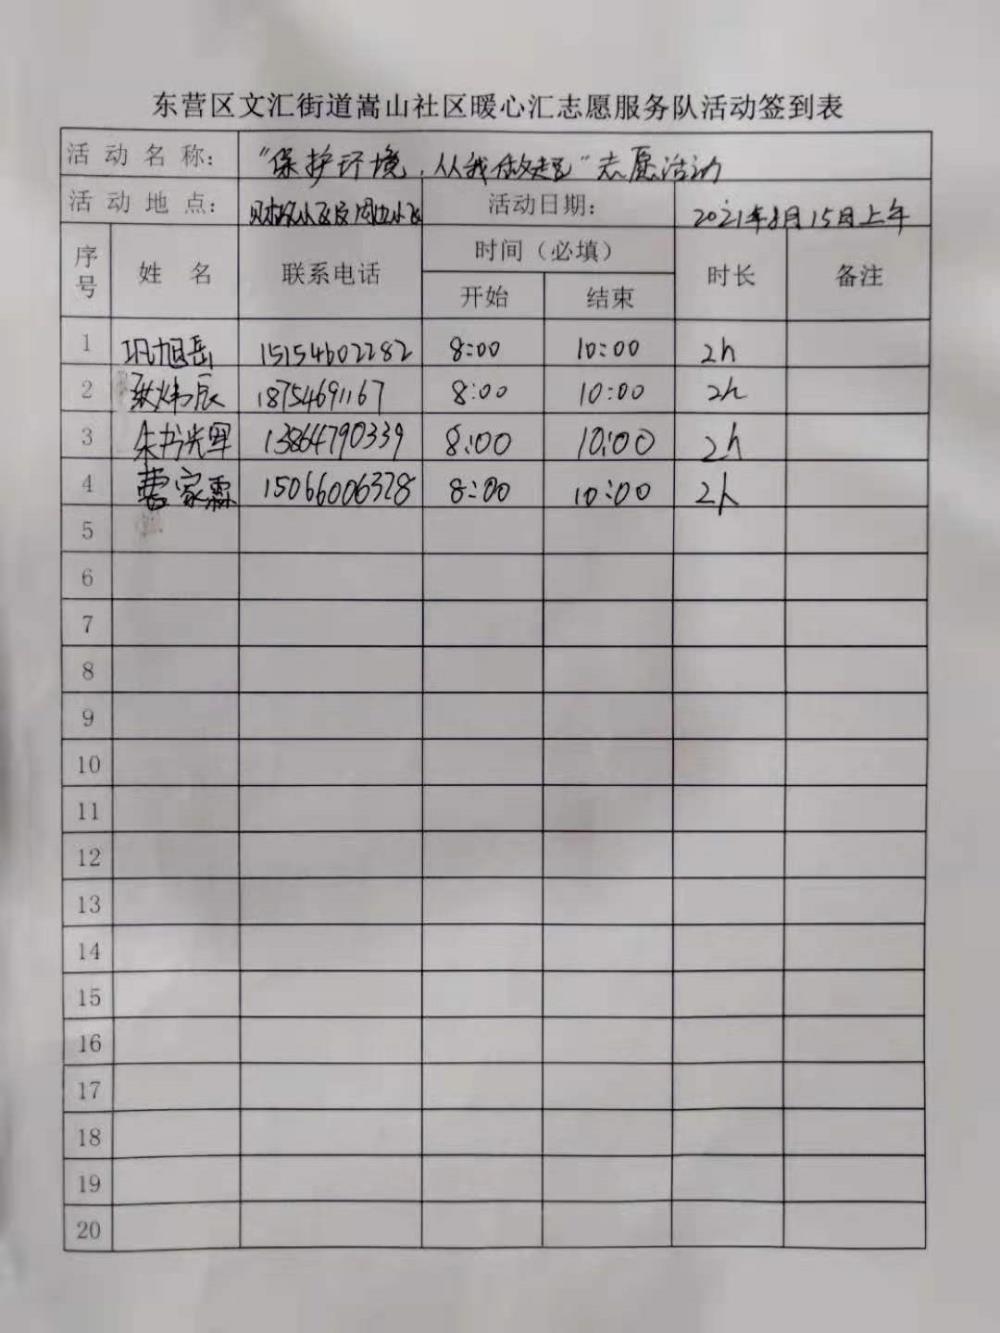 东营区文汇街道嵩山社区暖心汇志愿服务队活动签到表
活动名称： “保护环境，从我做起”志愿活动
活动地点： 小区及周边小区 活动日期： 2021年8月15日上午
序号 姓名 联系电话 时间（必填） 时长 备注
开始 结束
1 巩旭岳 15154602282 8:00 10:00 2h
2 炜辰 18754691167 8:00 10:00 2h
3 朱书光 13864790339 8:00 10:00 2h
4 曹家霖 15066006328 8:00 10:00 2h
5
6
7
8
9
10
11
12
13
14
15
16
17
18
19
20